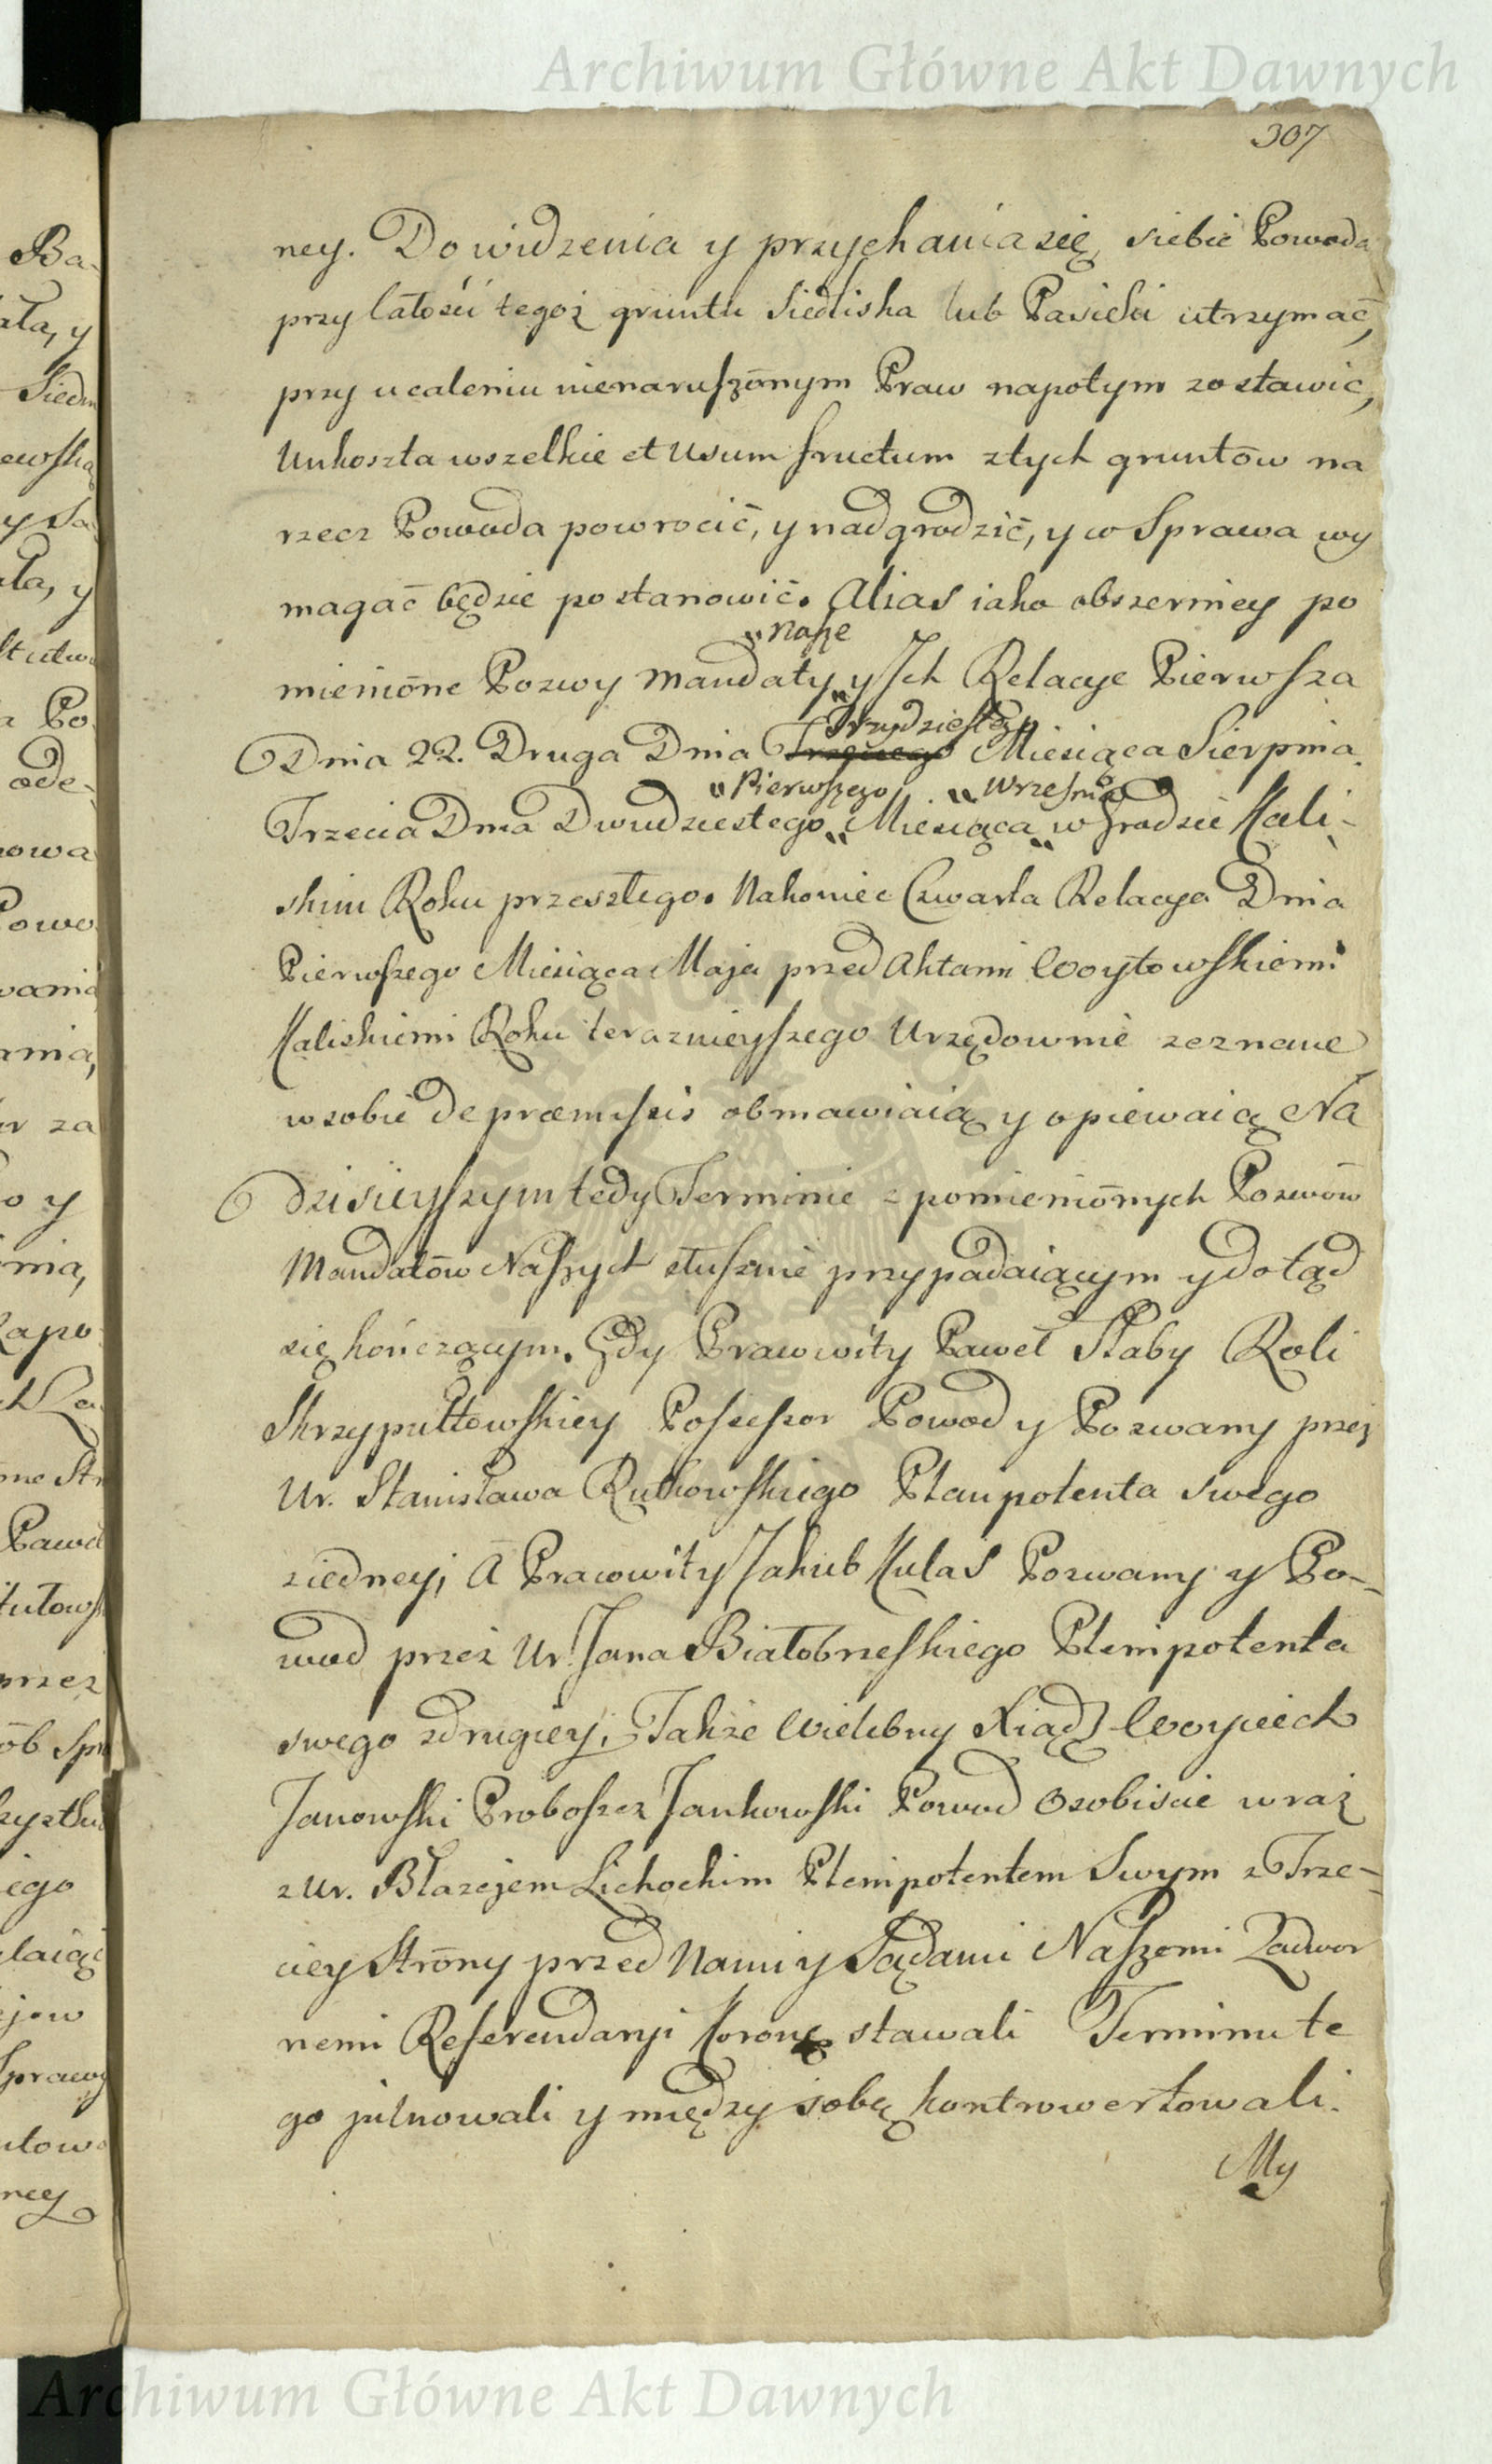 Archiwum Główne Akt Dawnych
307
ney. Do widzenia y przychania się, siebie Powoda
przy całości tegoż gruntu Siedliska lub Pasieki utrzymać,
przy ucaleniu nienaruszōnym Praw napotym zostawić,
Unkoszta wszelkie et Usum fructum ztych gruntōw na
rzecz Powoda powrocić, y nadgrodzić, y co Sprawa wy
magać będzie postanowić. Alias iako obszerniey po
„nasze
mieniōne Pozwy Mandaty „ y Ich Relacye Pierwsza
„Trzydziestego
Dnia 22. Druga Dnia Trzeciego Miesiąca Sierpnia
„Pierwszego „Wrzesnia
Trzecia Dnia Dwudziestego „ Miesiąca „ w Grodzie Kali-
skim Roku przeszłego. Nakoniec Czwarta Relacya Dnia
Pierwszego Miesiąca Maja przed Aktami Woytowskiemi
Kaliskiemi Roku terazniejszego Urzędownie zeznane
w sobie de præmissis obmawiaią y opiewaią Na
dzisieyszym tedy Terminie z pomieniōnych Pozwōw
Mandatōw Naszych słusznie przypadaiącym y dotąd
się kończącym. Gdy Pracowity Paweł Słaby Roli
Skrzypułtowskiey Possessor Powod y Pozwany przez
Ur. Stanisława Rutkowskiego Plenipotenta swego
ziedney; A Pracowity Jakub Kulas Pozwany y Po-
wod przez Ur. Jana Białobrzeskiego Plenipotenta
swego zdrugiey; Także Wielebny Xiądz Woyciech
Janowski Proboszcz Jankowski Powod Osobiscie wraz
z Ur. Błazejem Lichockim Plenipotentem Swym z Trze-
ciey Strōny przed Nami y Sądami Naszemi Zadwor
nemi Referendaryi Koronę stawali Terminu te
go pilnowali y między sobą kontrowertowali.
My
Archiwum Główne Akt Dawnych